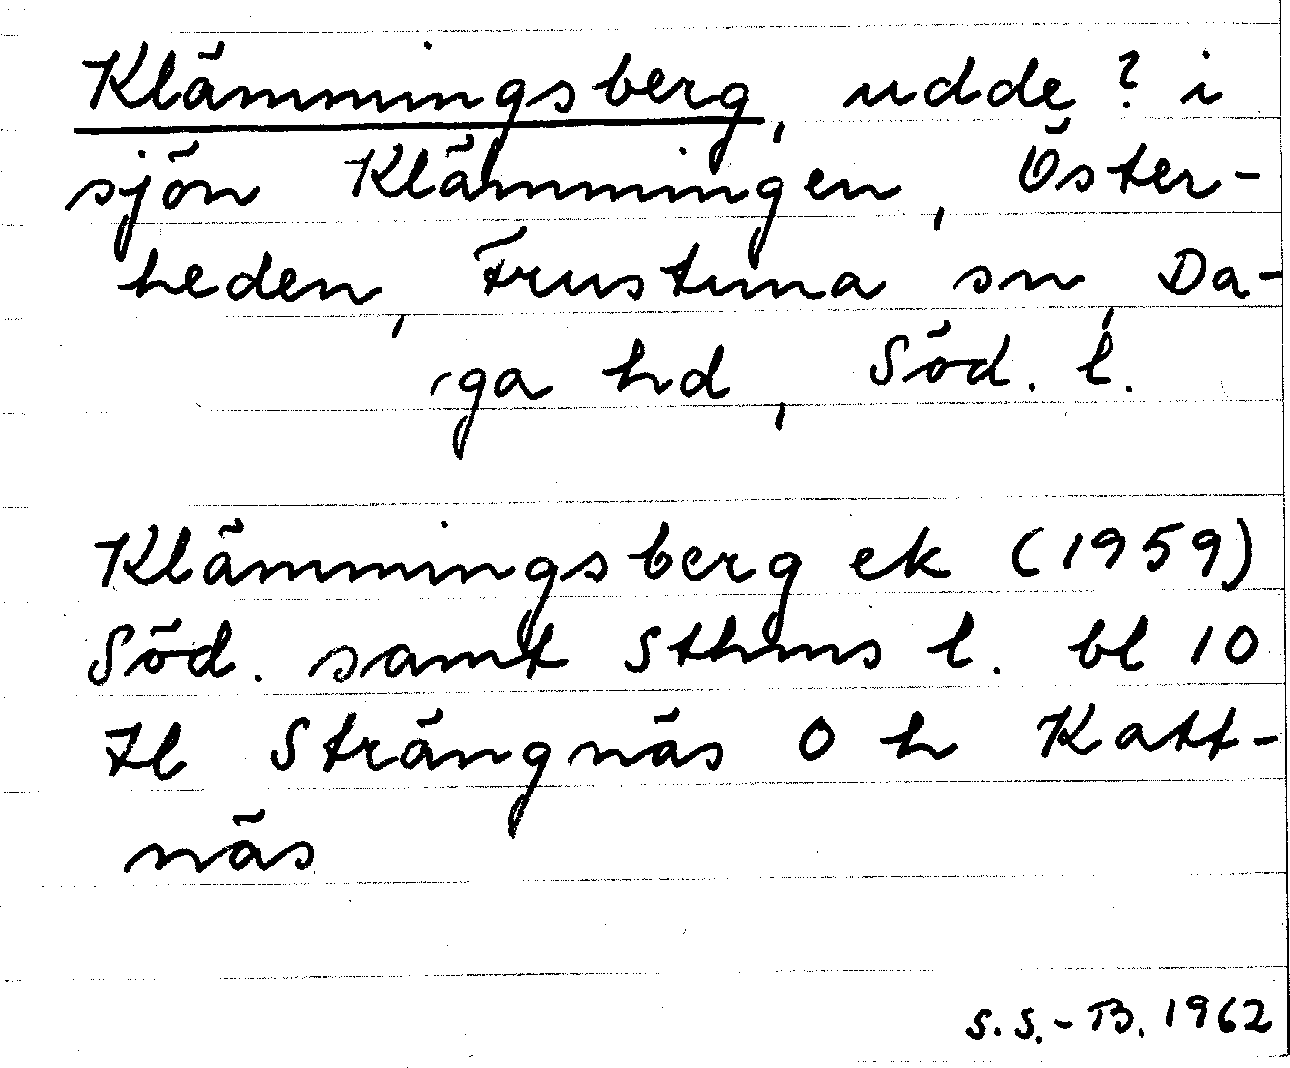 Klämmingsberg, udde? i
sjön Klämmingen, Öster-
heden, Frustuna sn, Da-
ga hd, Söd. l.
Klämmingsberg ek (1959)
Söd. samt Sthms l. bl 10
Il Strängnäs O h Katt-
näs
S.S.-B. 1962